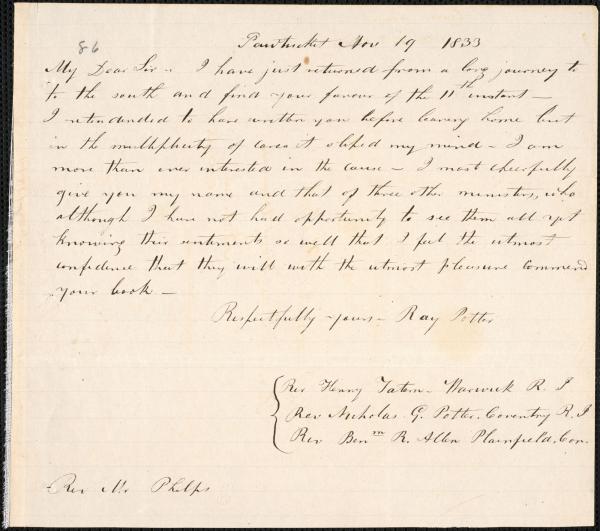 86
Pawtucket Nov 19 1833
My Dear Sir - I have just returned from a long journey to
to the south and find your favour of the 11th instant -
I intended to have written you before leaving home but
in the multiplicity of cares it sliped my mind - I am
more than ever interested in the cause - I most cheerfully
give you my name and that of three other ministers, who
although I have not had opportunity to see them all yet
knowing their sentiments so well that I feel the utmost
confidence that they will with the utmost pleasure commend
your book -
Respectfully yours - Ray Potter
Rev Henry Tatem - Warwick R. I
Rev Nicholas G. Potter. Coventry R. I
Rev Benm R. Allen Plainfield, Con.
Rev Mr Phelps